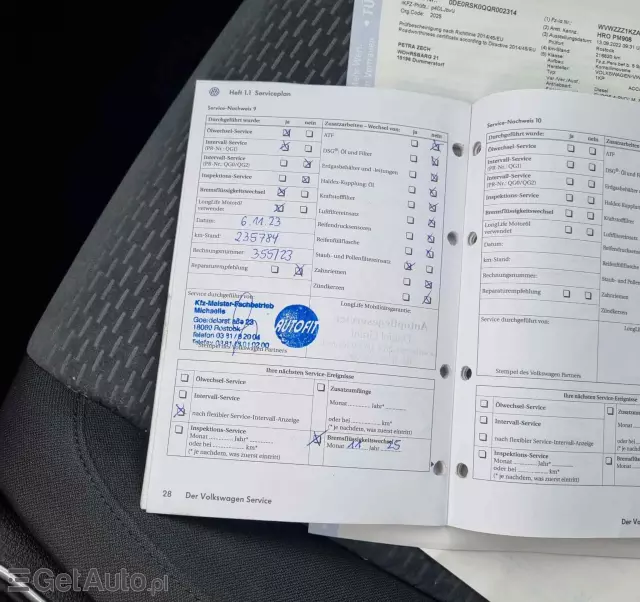 0DE0RSK0QQR002314
Org.Code: 2026
Prüfbescheinigung nach Richtlinie 2014/45/EU
Roadworthiness certificate according to Directive 2014/45/EU
PETRA ZECH
18196 Dummerstorf
WVWZZZ1KZA
HRO PM906
13.09.2022
Rostock
218620 km
VOLKSWAGEN
Heft 1.1 Serviceplan
Service-Nachweis 9
Durchgeführt wurde: ja nein
Ölwechsel-Service
Intervall-Service
(PR-Nr.: QG1)
Intervall-Service
(PR-Nr.: QG0/QG2)
Inspektions-Service
Bremsflüssigkeitswechsel
LongLife Motoröl
verwendet
Datum: 6.11.23
km-Stand: 235784
Rechnungsnummer: 355/23
Reparaturempfehlung
Zusatzarbeiten - Wechsel von: ja nein
ATF
DSG®-Öl und Filter
Erdgasbehälter und -leitungen
Haldex-Kupplung: Öl
Kraftstofffilter
Luftfiltereinsatz
Reifendrucksensoren
Reifenfüllflasche
Staub- und Pollenfiltereinsatz
Zahnriemen
Zündkerzen
Service durchgeführt von:
LongLife Mobilitätsgarantie
Kfz-Meister-Fachbetrieb
Michaelis
18069 Rostock
AUTOFIT
Stempel des Volkswagen Partners
Ihre nächsten Service-Ereignisse
Ölwechsel-Service
Intervall-Service
nach flexibler Service-Intervall-Anzeige
Inspektions-Service
Monat ........ Jahr* ........
oder bei ........ km*
(* je nachdem, was zuerst eintritt)
Zusatzumfänge
Monat ........ Jahr* ........
oder bei ........ km*
(* je nachdem, was zuerst eintritt)
Bremsflüssigkeitswechsel
Monat 11 Jahr 25
28 Der Volkswagen Service
Service-Nachweis 10
Durchgeführt wurde: ja nein
Ölwechsel-Service
Intervall-Service
(PR-Nr.: QG1)
Intervall-Service
(PR-Nr.: QG0/QG2)
Inspektions-Service
Bremsflüssigkeitswechsel
LongLife Motoröl
verwendet
Datum:
km-Stand:
Rechnungsnummer:
Reparaturempfehlung
Zusatzarbeiten
ATF
DSG®-Öl und
Erdgasbehälter
Haldex-Kupplung
Kraftstofffilter
Luftfiltereinsatz
Reifendrucksensoren
Reifenfüllflasche
Staub- und Pollen
Zahnriemen
Zündkerzen
Service durchgeführt von:
Stempel des Volkswagen Partners
Ihre nächsten Service-Ereignisse
Ölwechsel-Service
Intervall-Service
nach flexibler Service-Intervall-Anzeige
Inspektions-Service
Monat ........ Jahr* ........
oder bei ........ km*
(* je nachdem, was zuerst eintritt)
Zusatz
Monat
oder bei
(* je nachdem
Monat
Der Vol
GetAuto.pl